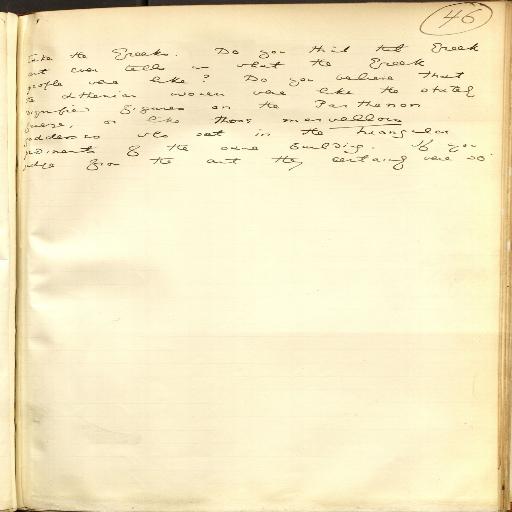 46
Take the Greeks. Do you think that Greek
art ever tells us what the Greek
people were like? Do you believe that
the Athenian women were like the stately
dignified figures on the Parthenon
frieze, or like those marvellous
goddesses who sat in the triangular
pediments of the same building. If you
judge from the art they certainly were so.